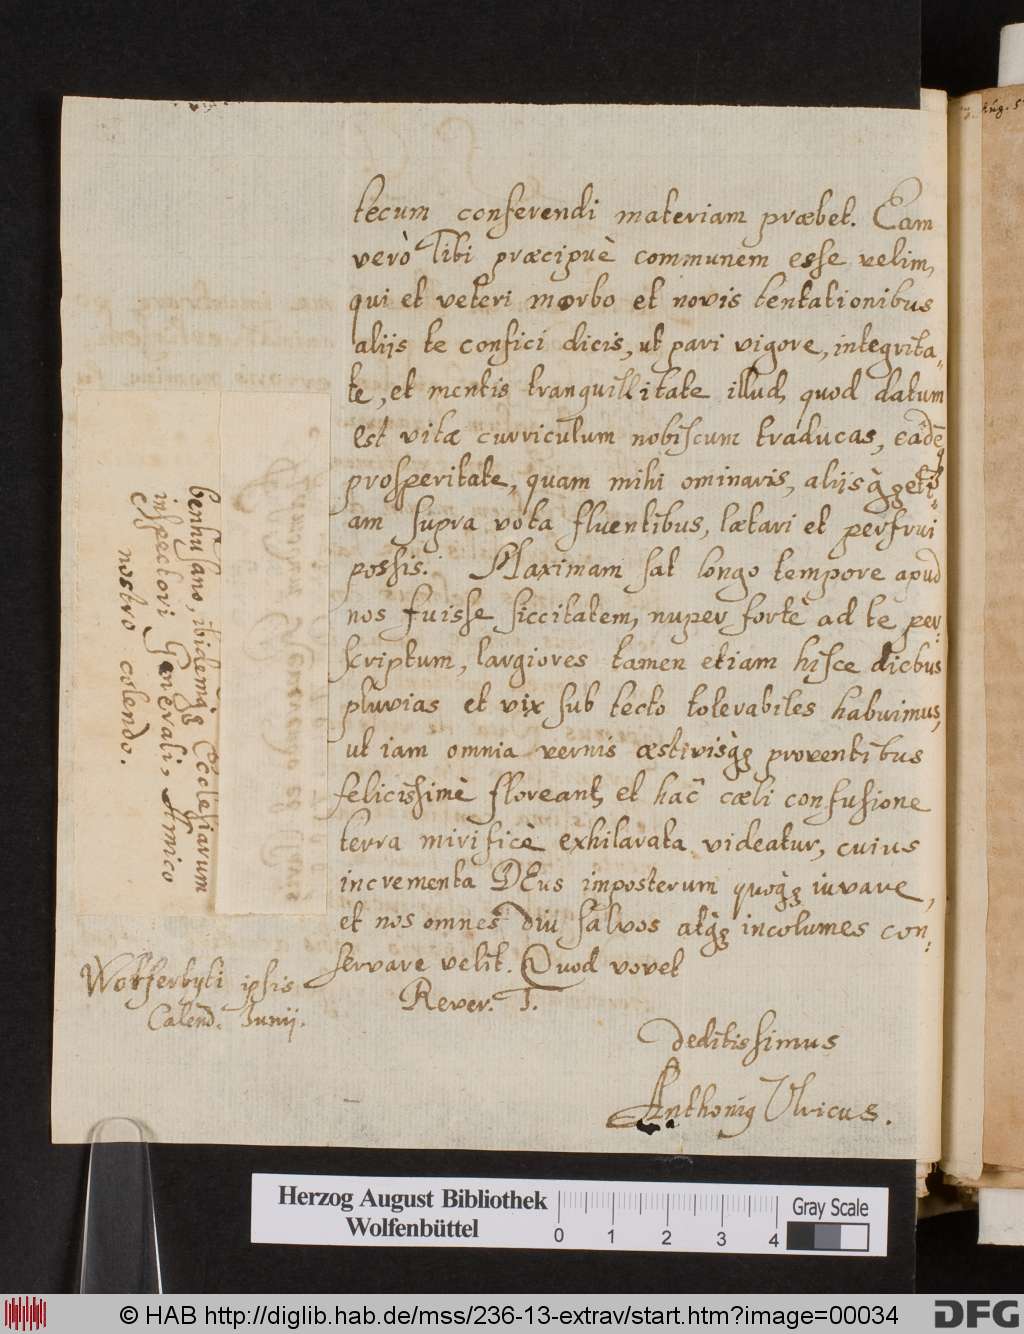 tecum conferendi materiam præbet. Eam
verò Tibi præcipuè communem esse velim,
qui et veteri morbo et novis tentationibus
alijs te confici dicis, ut pari vigore, integrita-
te, et mentis tranquillitate illud, quod datum
est vitæ curriculum nobiscum traducas, eâdē
prosperitate, quam mihi ominaris, alijsq́ȝ
am supra vota fluentibus, lætari et perfrui
possis. Maximam sat longo tempore apud
nos fuisse siccitatem, nuper fortè ad te per-
scriptum, largiores tamen etiam hisce diebus
pluvias et vix sub tecto tolerabiles habuimus,
ut iam omnia vernis æstivisq́ȝ proventibus
felicissimè floreant, et hac cæli confusione
terra mirificè exhilarata videatur, cuius
incrementa DEus imposterum quoq́ȝ iuvare,
et nos omnes diu salvos atq́ȝ incolumes con-
servare velit. Quod vovet
Rever. T.
deditissimus
Anthonig Ulricus.
Wolferbyti ipsis
Calend. Junij.
benhusano, ibidemq́ȝ Ecclesiarum
inspectori Generali, Amico
nostro colendo.
3. Aug. 5
Herzog August Bibliothek
Wolfenbüttel
0 1 2 3 4
Gray Scale
© HAB http://diglib.hab.de/mss/236-13-extrav/start.htm?image=00034
DFG